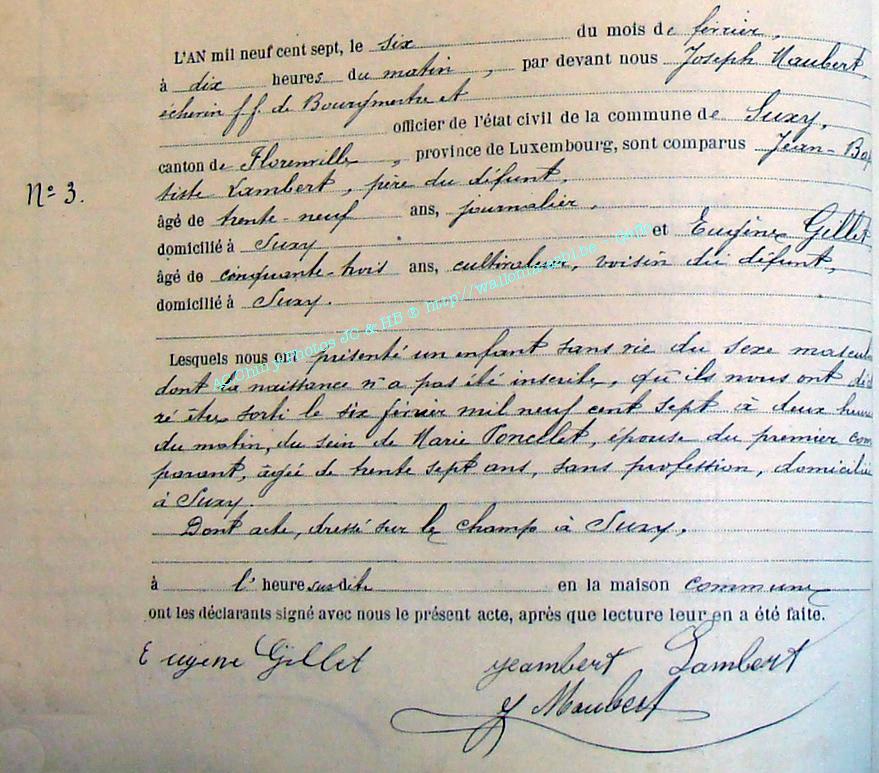 L'AN mil neuf cent sept, le six du mois de février,
à dix heures du matin, par devant nous Joseph Maubert,
échevin ff. de Bourgmestre et
officier de l'état civil de la commune de Suxy,
canton de Florenville, province de Luxembourg, sont comparus Jean-Bap
tiste Lambert, père du défunt,
N° 3.
âgé de trente-neuf ans, journalier,
domicilié à Suxy et Eugène Gillet,
âgé de cinquante-trois ans, cultivateur, voisin du défunt,
domicilié à Suxy.
Lesquels nous ont présenté un enfant sans vie du sexe mascul
dont la naissance n'a pas été inscrite, qu'ils nous ont décl
ré être sorti le six février mil neuf cent sept à deux heure
du matin, du sein de Marie Poncelet, épouse du premier com
parant, âgée de trente sept ans, sans profession, domiciliée
à Suxy.
Dont acte, dressé sur le champ à Suxy.
à l'heure susdite en la maison commune
ont les déclarants signé avec nous le présent acte, après que lecture leur en a été faite.
Eugene Gillet jeambert Lambert
J Maubert
AC Chiny Photos JC & HB ® http://wallonica